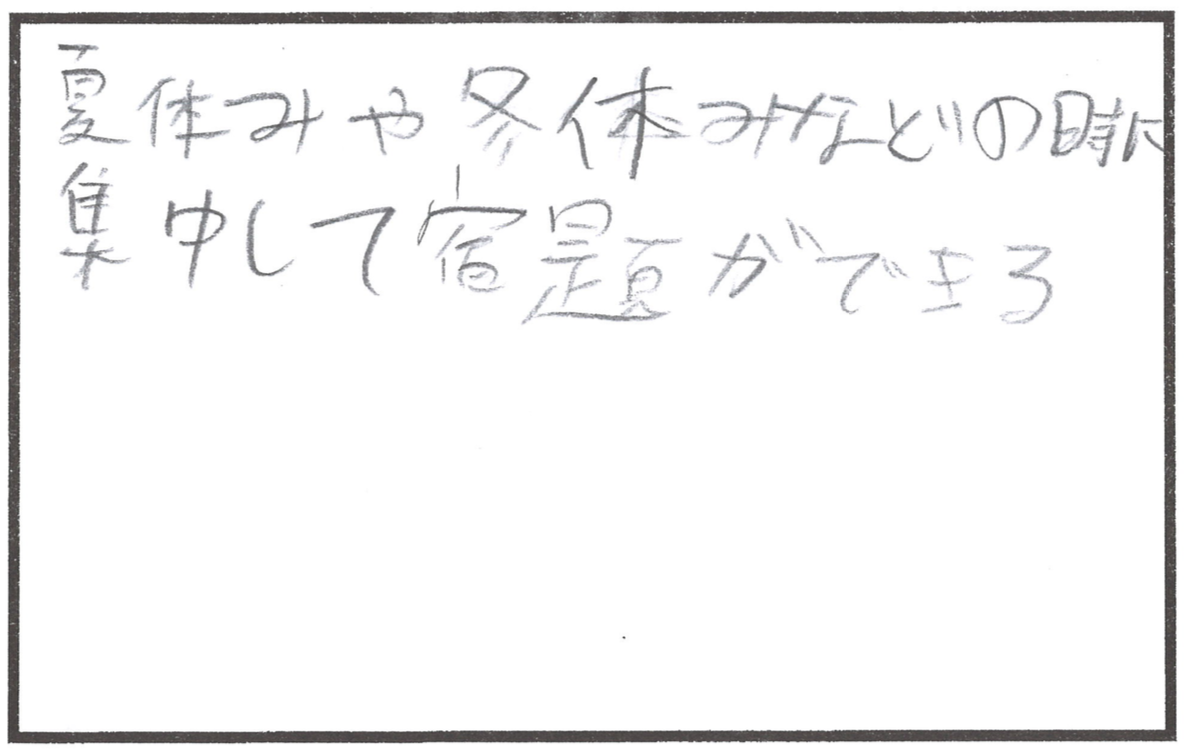 夏休みや冬休みなどの時に
集中して宿題ができる